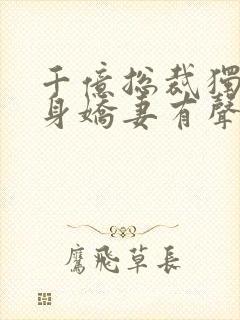 千億總裁獨
身嬌妻有聲
鷹飛草長